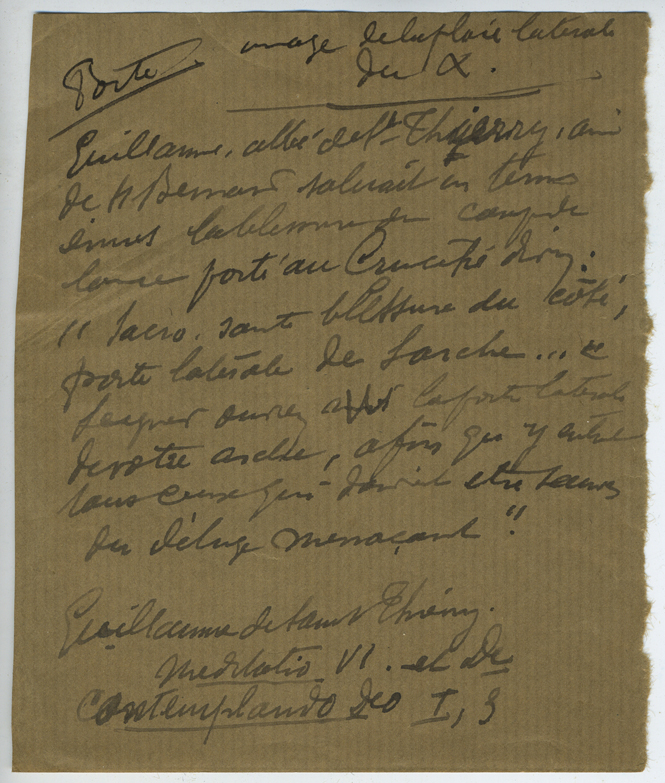 Porte image de la plaie latérale
du X.
Guillaume, abbé de St Thierry, ami
de St Bernard saluait en termes
émus la blessure du coup de
lance porté au Crucifié divin :
" Sacro. sainte blessure du côté,
porte latérale de l'arche...
Seigneur ouvrez la porte latérale
de votre arche, afin qu'y entre
tous ceux qui doivent être sauvés
du déluge menaçant "
Guillaume de Saint Thierry.
Meditatio VI. et De
Contemplando Deo I, 3